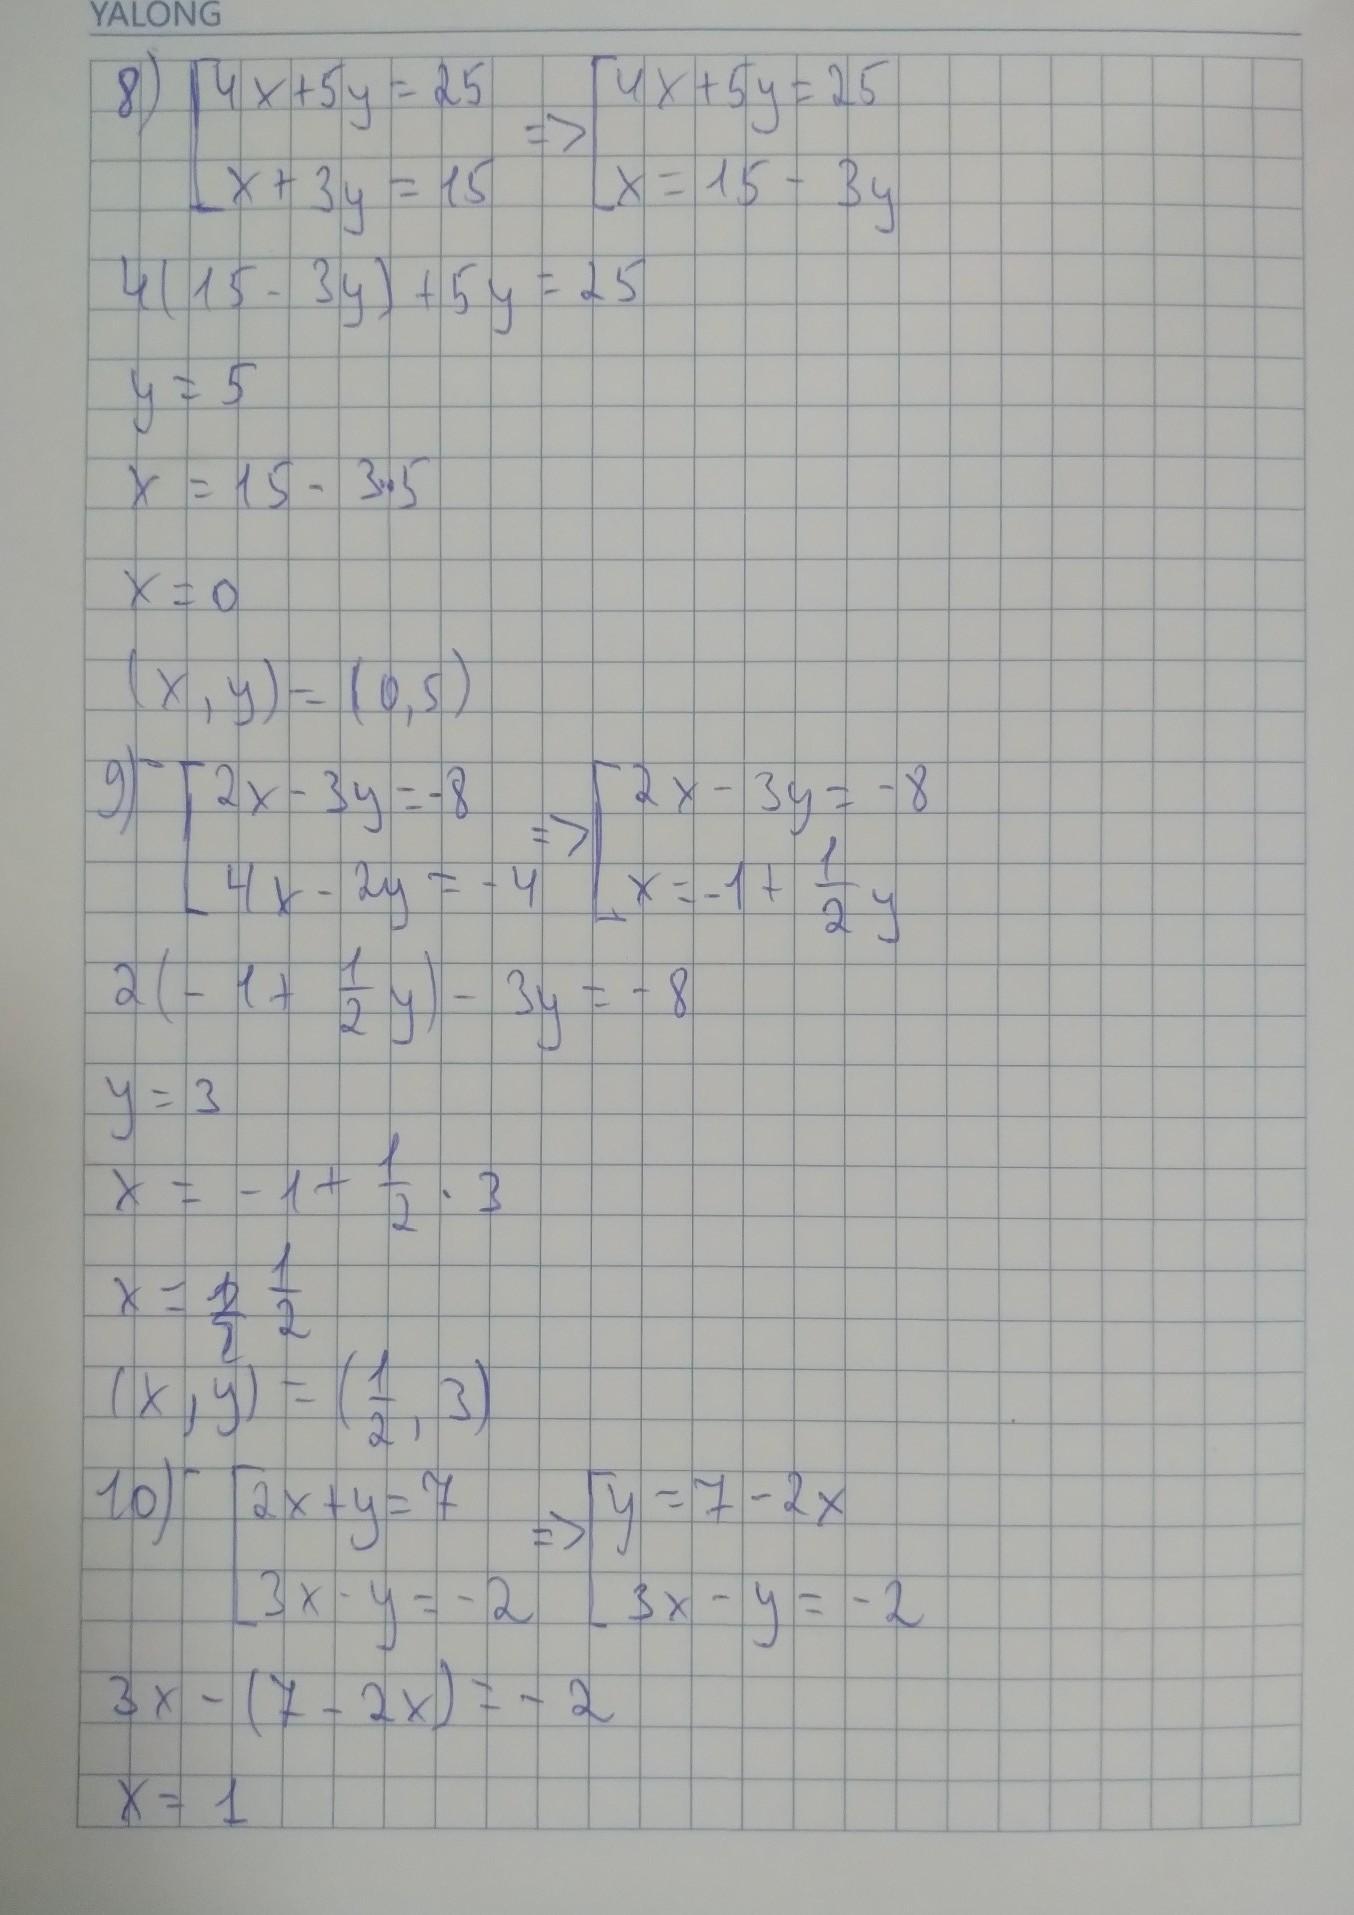 YALONG
8) [4x+5y=25 => [4x+5y=25
x+3y=15 x=15-3y
4(15-3y)+5y=25
y=5
x=15-3·5
x=0
(x,y)=(0,5)
9) [2x-3y=-8 => [2x-3y=-8
4x-2y=-4 x=-1+1/2y
2(-1+1/2y)-3y=-8
y=3
x=-1+1/2·3
x=1/2
(x,y)=(1/2,3)
10) [2x+y=7 => [y=7-2x
3x-y=-2 3x-y=-2
3x-(7-2x)=-2
x=1